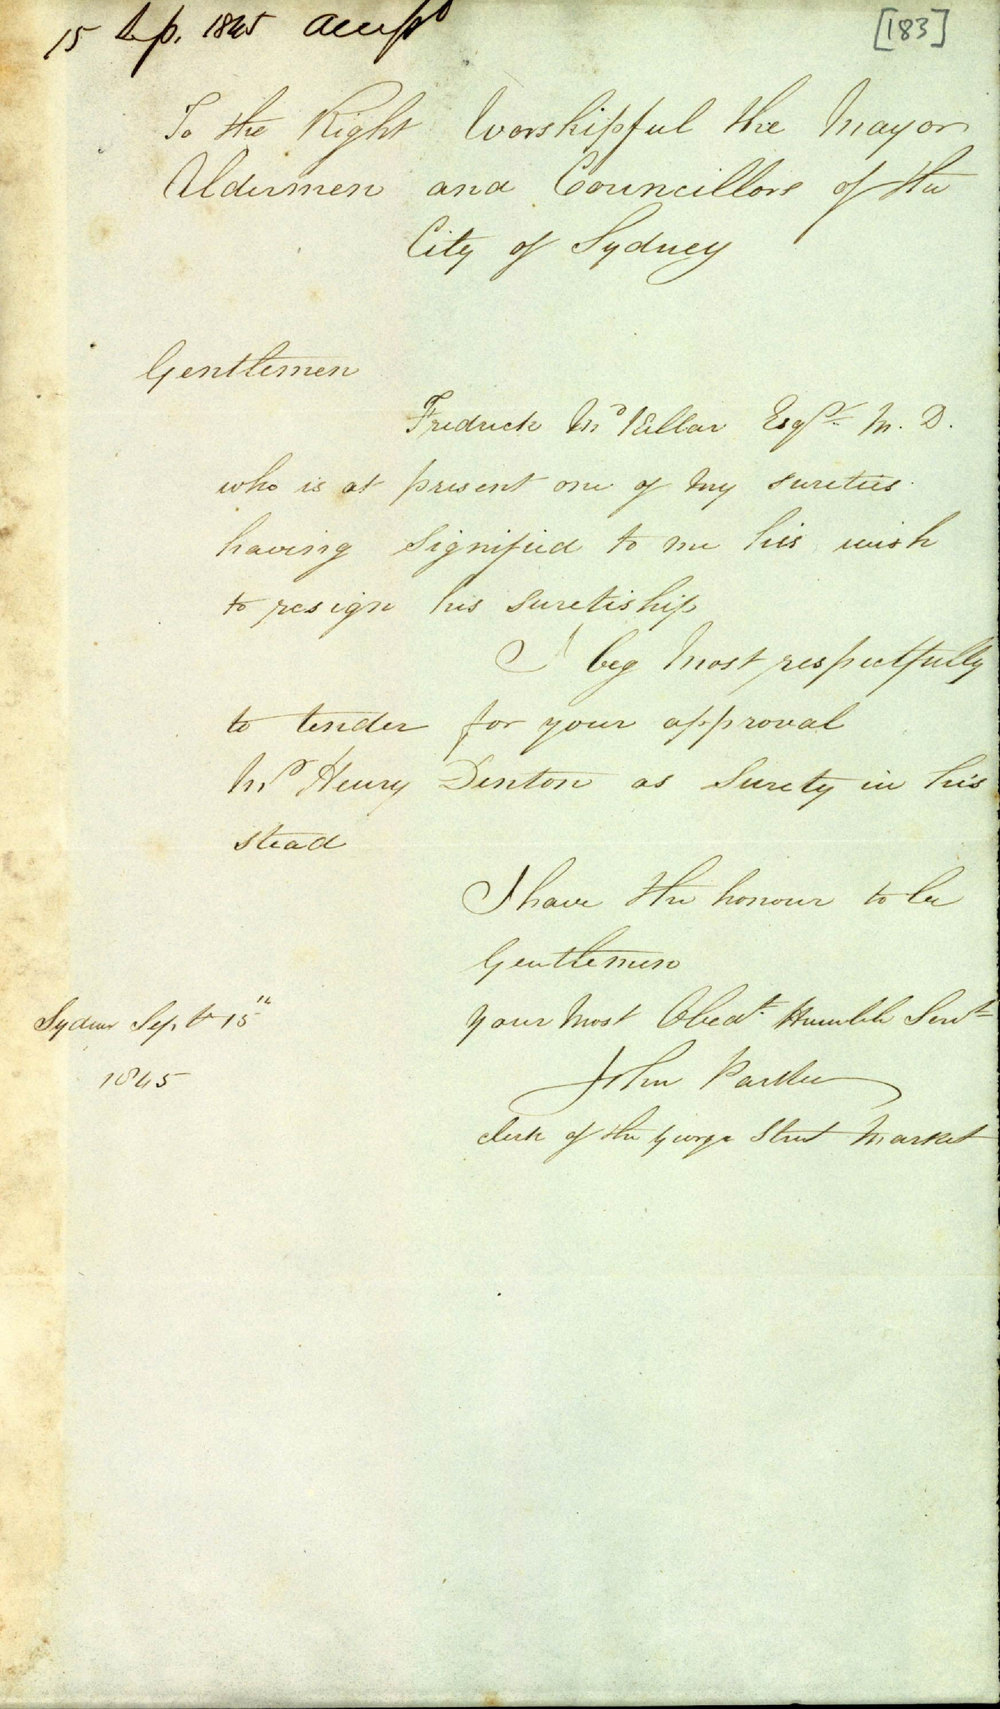 15 Sep. 1845 Accept
[183]
To the Right Worshipful the Mayor
Aldermen and Councillors of the
City of Sydney
Gentlemen
Fredrick Mc Kellar Esqr. M. D.
who is at present one of my sureties
having signified to me his wish
to resign his suretiship
I beg most respectfully
to tender for your approval
Mr Henry Denton as Surety in his
stead
I have the honour to be
Gentlemen
Sydney Septr 15th
your most Obedt. Humble Servt
1845
John
Clerk of the George Street Market